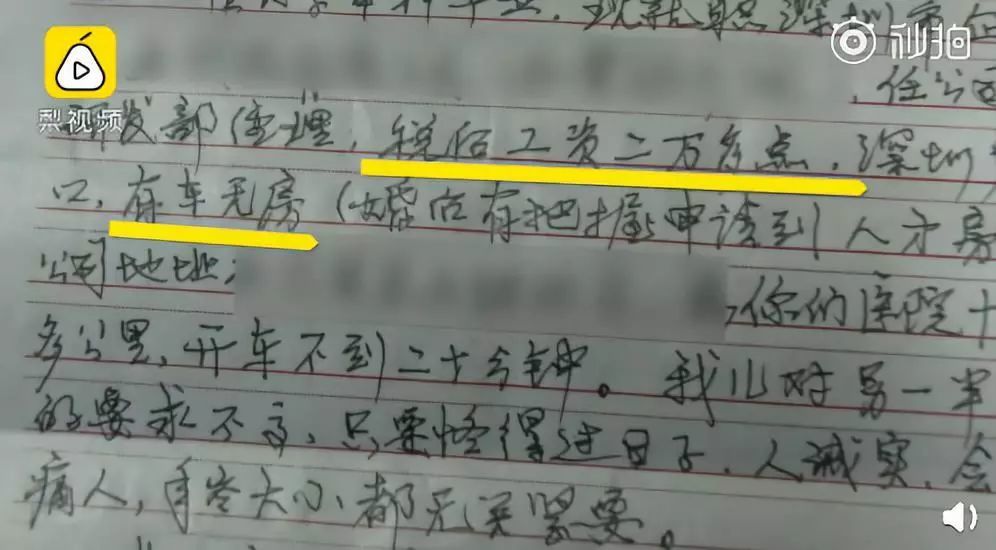 现就职深圳市
秒拍
梨视频
，任公司
研发部经理，税后工资二万多点，深圳户
口，有车无房（婚后有把握申请到人才房
公司地址：
，你们医院十
多公里，开车不到二十分钟。我儿对另一半
的要求不高，只要懂得过日子，人诚实，会
痛人，年岁大小都无关紧要。